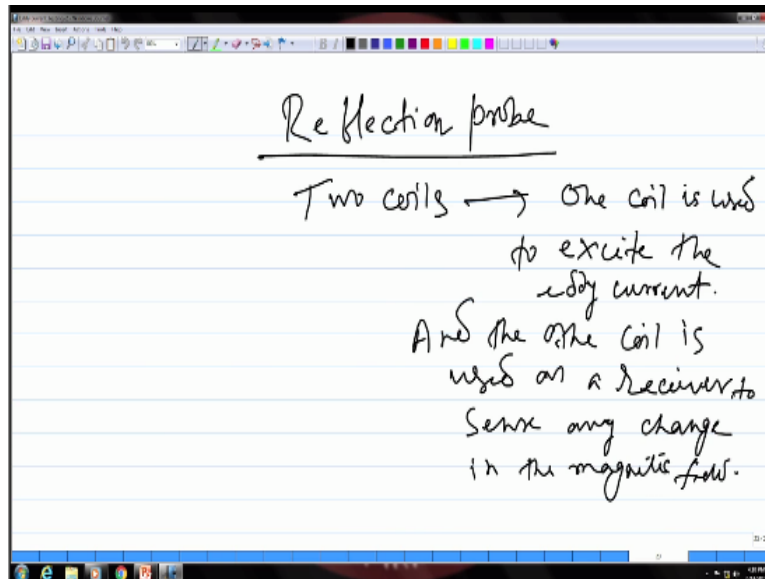 Reflection probe
Two coils → One coil is used
to excite the
eddy current.
And the othe coil is
used as a receiver, to
sense any change
in the magnetic field.